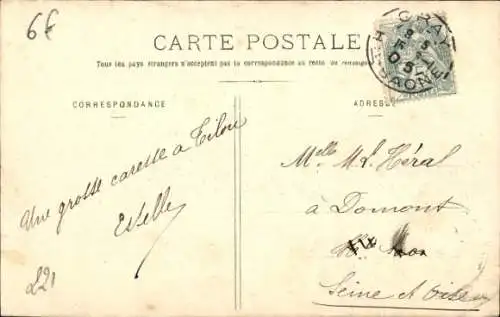 6f
CARTE POSTALE
Tous les pays étrangers n'acceptent pas la correspondance au recto (se renseigner
CORRESPONDANCE
ADRESSE
GRAY
Hte SAONE
Une grosse caresse à Tilou
Estelle
L21
Melle M.L. Héral
à Domont
Seine et Oise